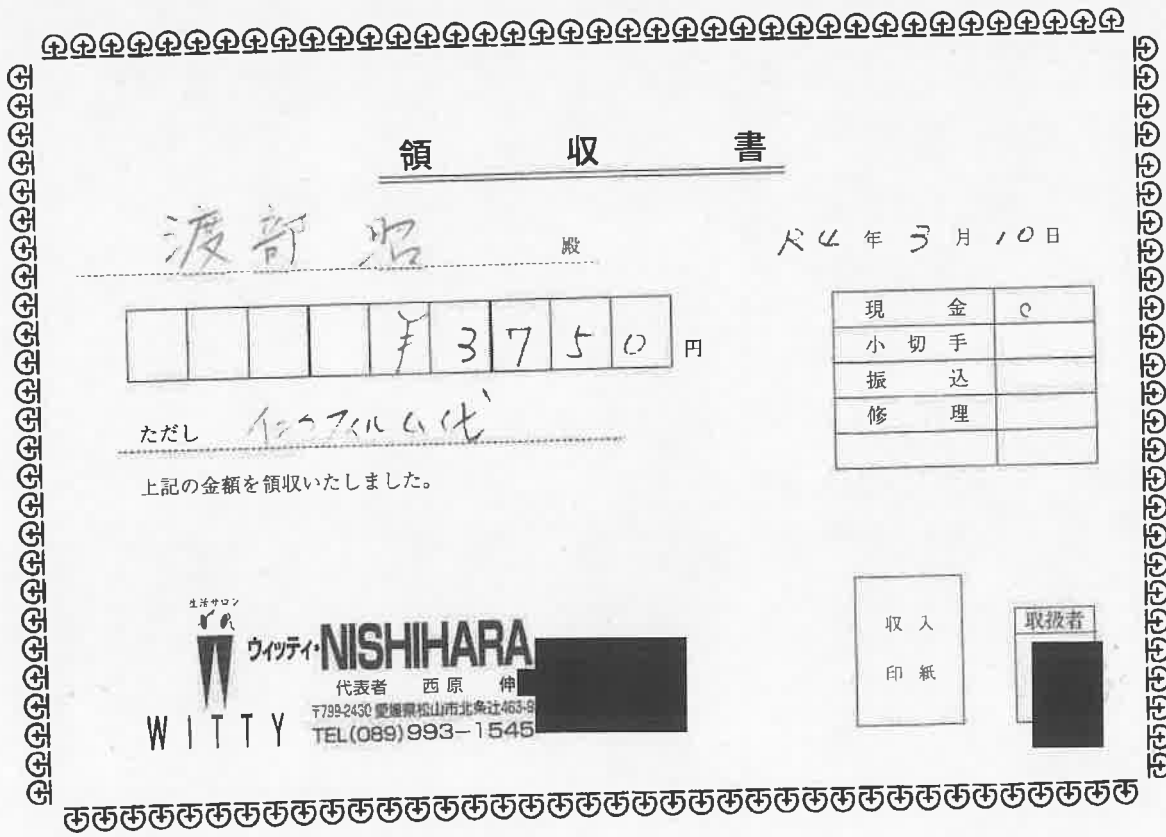 領収書
渡部 昭 殿
R4年3月10日
¥3750円
現金 ○
小切手
振込
修理
ただし インクフィルム代
上記の金額を領収いたしました。
生活サロン
ウィッティ・NISHIHARA
代表者 西原 伸
〒799-2430 愛媛県松山市北条辻463-9
TEL(089)993-1545
WITTY
収入
印紙
取扱者